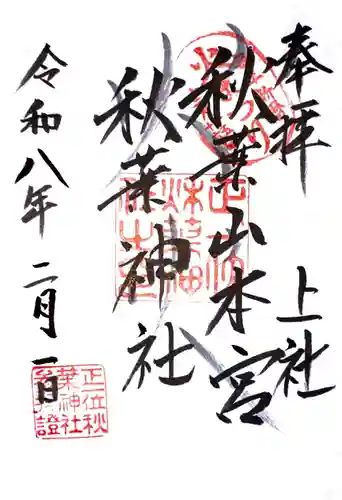 奉拝
上社
秋葉山本宮
秋葉神社
令和八年 二月一日
正位秋
葉神社